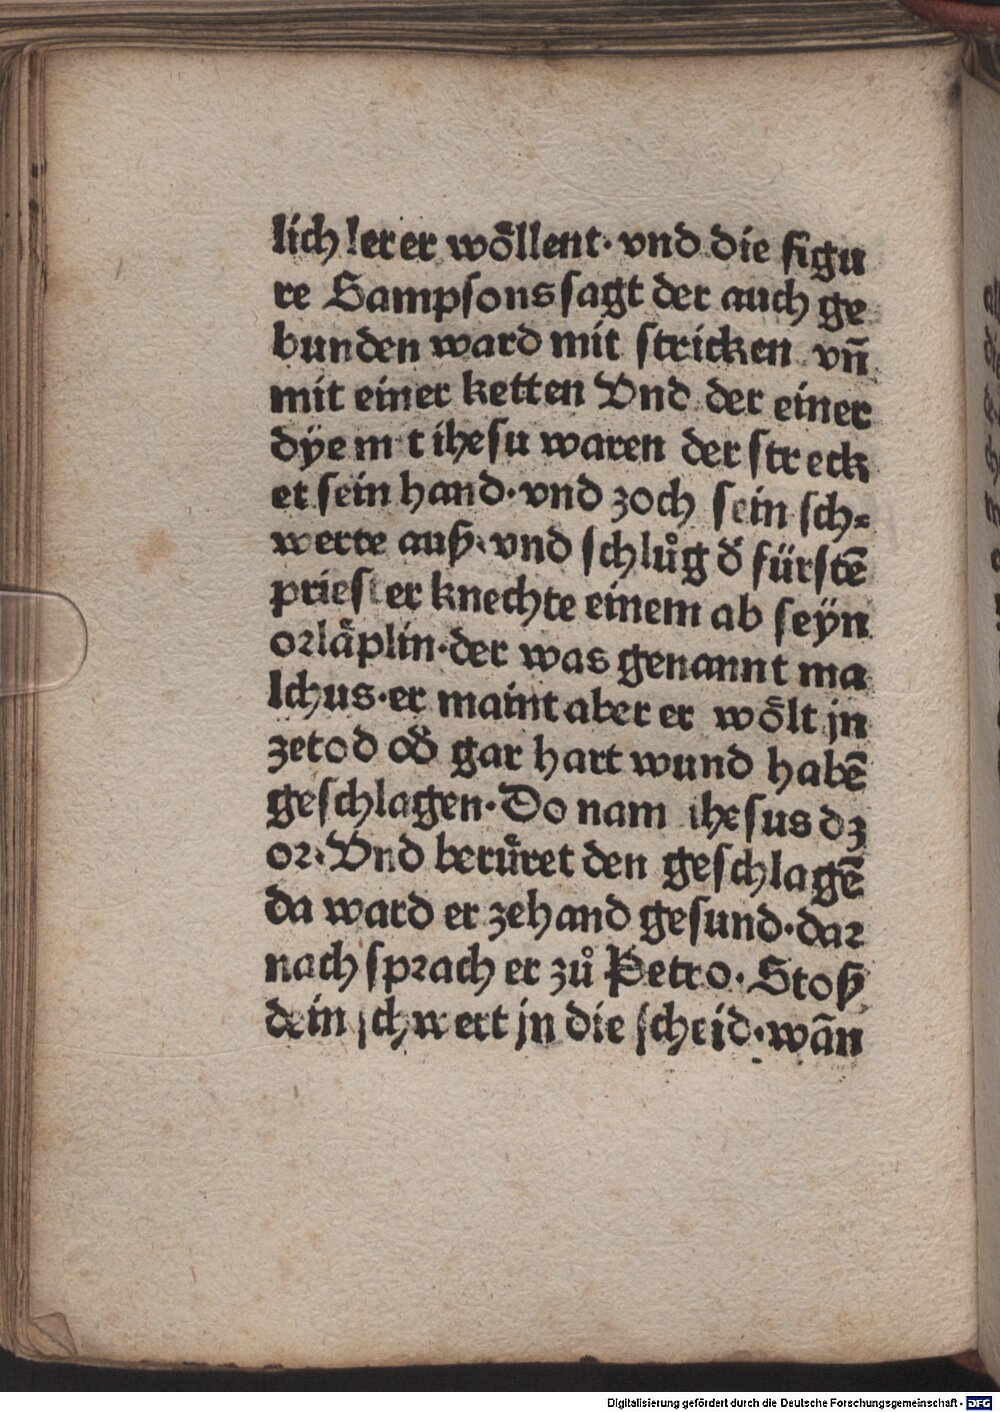 lich lerer wöllent· vnd die figu
re Sampsons sagt der auch ge
bunden ward mit stricken vn̄
mit einer ketten Vnd der einer
dÿe mit ihesu waren der streck
et sein hand· vnd zoch sein sch⸗
werte auß· vnd schlůg d̄ fürstē
priester knechte einem ab seÿn
orläplin· der was genannt ma
lchus· er maint aber er wo᷑lt jn
zetod od̄ gar hart wund habē
geschlagen· Do nam ihesus dz
or· Vnd berüret den geschlagē
da ward er zehand gesund· dar
nach sprach er zů Petro· Stoß
dein schwert jn die scheid· wān
Digitalisierung gefördert durch die Deutsche Forschungsgemeinschaft - DFG